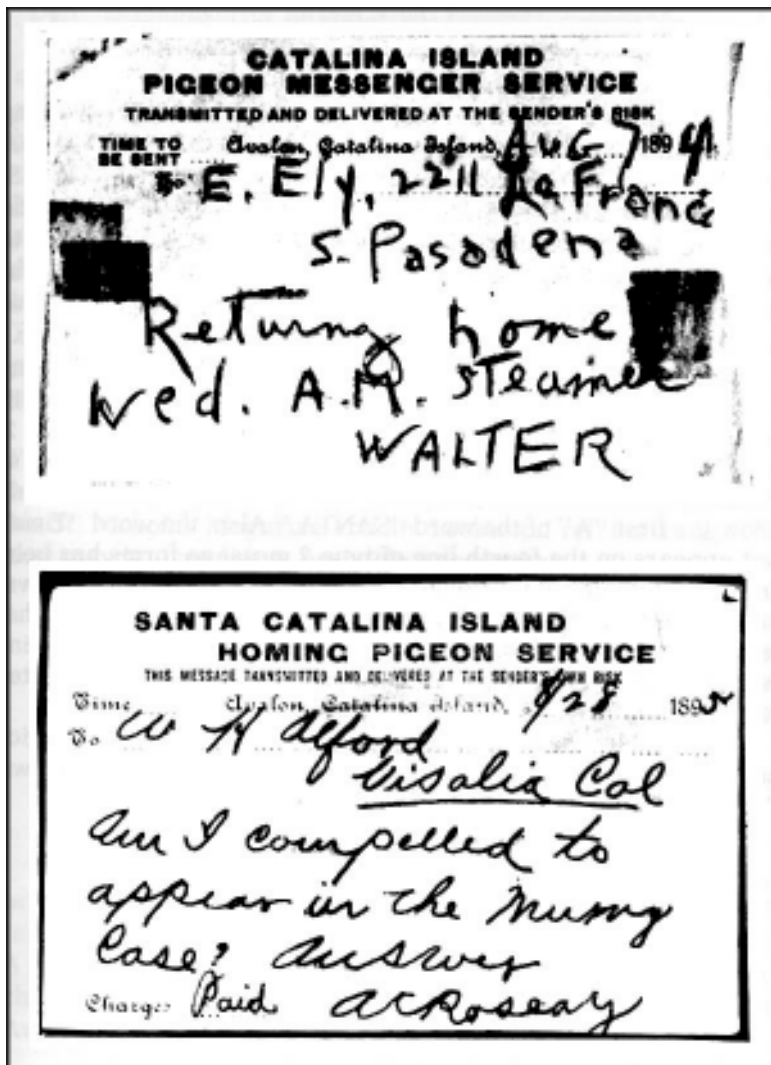 CATALINA ISLAND
PIGEON MESSENGER SERVICE
TRANSMITTED AND DELIVERED AT THE SENDER'S RISK
TIME TO BE SENT Avalon, Catalina Island, AUG 7 1894
To E. Ely, 2211 La France
S. Pasadena
Returning home
Wed. A.M. steamer
WALTER
SANTA CATALINA ISLAND
HOMING PIGEON SERVICE
THIS MESSAGE TRANSMITTED AND DELIVERED AT THE SENDER'S OWN RISK
Time Avalon, Catalina Island, 8/28 1895
To W H Alford
Visalia Cal
Am I compelled to
appear in the
Case? Answer
Charges Paid